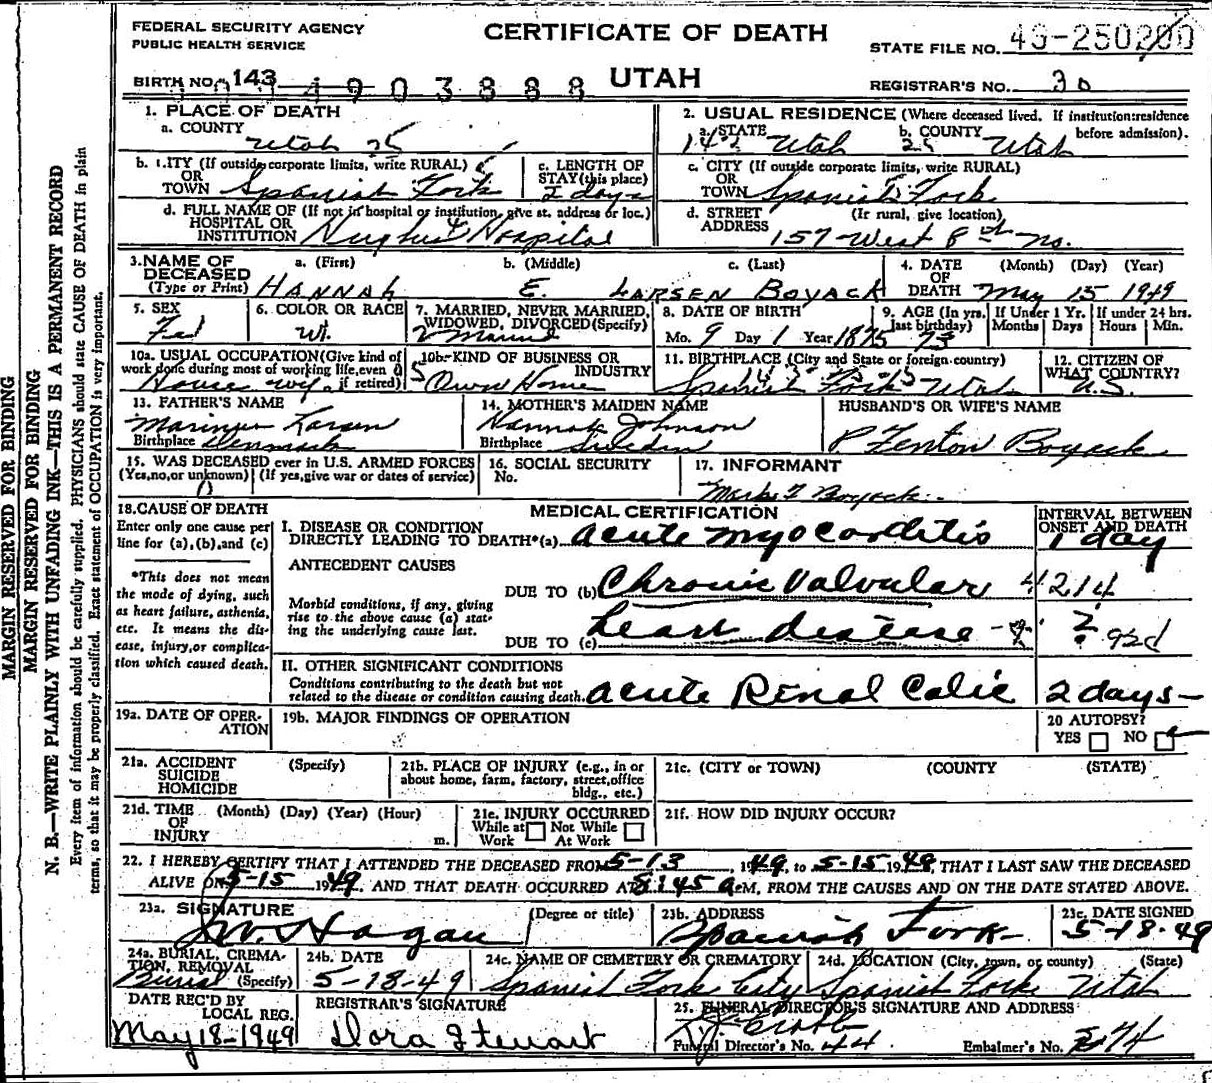 FEDERAL SECURITY AGENCY
PUBLIC HEALTH SERVICE
CERTIFICATE OF DEATH
STATE FILE NO. 49-250200
BIRTH NO. 143 4903888
UTAH
REGISTRAR'S NO. 30
1. PLACE OF DEATH
a. COUNTY
Utah 25
2. USUAL RESIDENCE (Where deceased lived. If institution: residence before admission).
a. STATE Utah
b. COUNTY Utah
b. CITY (If outside corporate limits, write RURAL)
OR
TOWN Spanish Fork
c. LENGTH OF
STAY (this place)
2 days
c. CITY (If outside corporate limits, write RURAL)
OR
TOWN Spanish Fork
d. FULL NAME OF (If not in hospital or institution, give st. address or loc.)
HOSPITAL OR
INSTITUTION Hughes Hospital
d. STREET (If rural, give location)
ADDRESS
157 West 8th No.
3. NAME OF
DECEASED
(Type or Print)
a. (First) b. (Middle) c. (Last)
HANNAH E. LARSEN BOYACK
4. DATE (Month) (Day) (Year)
OF
DEATH May 15 1949
5. SEX
6. COLOR OR RACE
Wt.
7. MARRIED, NEVER MARRIED,
WIDOWED, DIVORCED (Specify)
8. DATE OF BIRTH
Mo. 9 Day 1 Year 1875
9. AGE (In yrs. last birthday)
73
If Under 1 Yr.
Months Days
If under 24 hrs.
Hours Min.
10a. USUAL OCCUPATION (Give kind of
work done during most of working life, even
if retired)
House wife
10b. KIND OF BUSINESS OR
INDUSTRY
Own Home
11. BIRTHPLACE (City and State or foreign country)
Spanish Fork Utah
12. CITIZEN OF
WHAT COUNTRY?
U.S.
13. FATHER'S NAME
Larsen
Birthplace Denmark
14. MOTHER'S MAIDEN NAME
Hannah Johnson
Birthplace Sweden
HUSBAND'S OR WIFE'S NAME
P. Fenton Boyack
15. WAS DECEASED ever in U.S. ARMED FORCES
(Yes, no, or unknown) (If yes, give war or dates of service)
16. SOCIAL SECURITY
No.
17. INFORMANT
Boyack
18. CAUSE OF DEATH
Enter only one cause per
line for (a), (b), and (c)
*This does not mean
the mode of dying, such
as heart failure, asthenia,
etc. It means the dis-
ease, injury, or complica-
tion which caused death.
MEDICAL CERTIFICATION
INTERVAL BETWEEN
ONSET AND DEATH
I. DISEASE OR CONDITION
DIRECTLY LEADING TO DEATH*(a) acute myocarditis 1 day
ANTECEDENT CAUSES
Morbid conditions, if any, giving
rise to the above cause (a) stat-
ing the underlying cause last.
DUE TO (b) Chronic Valvular 4214
DUE TO (c) heart disease ? 92d
II. OTHER SIGNIFICANT CONDITIONS
Conditions contributing to the death but not
related to the disease or condition causing death.
acute Renal Colic 2 days
19a. DATE OF OPER-
ATION
19b. MAJOR FINDINGS OF OPERATION
20 AUTOPSY?
YES NO
21a. ACCIDENT (Specify)
SUICIDE
HOMICIDE
21b. PLACE OF INJURY (e.g., in or
about home, farm, factory, street, office
bldg., etc.)
21c. (CITY or TOWN) (COUNTY) (STATE)
21d. TIME (Month) (Day) (Year) (Hour)
OF
INJURY m.
21e. INJURY OCCURRED
While at Work Not While At Work
21f. HOW DID INJURY OCCUR?
22. I HEREBY CERTIFY THAT I ATTENDED THE DECEASED FROM 5-13, 1949, to 5-15 1949, THAT I LAST SAW THE DECEASED
ALIVE ON 5-15 1949, AND THAT DEATH OCCURRED AT 5:45 a.M, FROM THE CAUSES AND ON THE DATE STATED ABOVE.
23a. SIGNATURE (Degree or title)
Hagan
23b. ADDRESS
Spanish Fork
23c. DATE SIGNED
5-18-49
24a. BURIAL, CREMA-
TION, REMOVAL
(Specify)
Burial
24b. DATE
5-18-49
24c. NAME OF CEMETERY OR CREMATORY
Spanish Fork City
24d. LOCATION (City, town, or county) (State)
Spanish Fork Utah
DATE REC'D BY
LOCAL REG.
May 18-1949
REGISTRAR'S SIGNATURE
Dora Stewart
25. FUNERAL DIRECTOR'S SIGNATURE AND ADDRESS
Funeral Director's No. 44
Embalmer's No. 374
MARGIN RESERVED FOR BINDING
MARGIN RESERVED FOR BINDING
N. B.—WRITE PLAINLY WITH UNFADING INK—THIS IS A PERMANENT RECORD
Every item of information should be carefully supplied. PHYSICIANS should state CAUSE OF DEATH in plain
terms, so that it may be properly classified. Exact statement of OCCUPATION is very important.